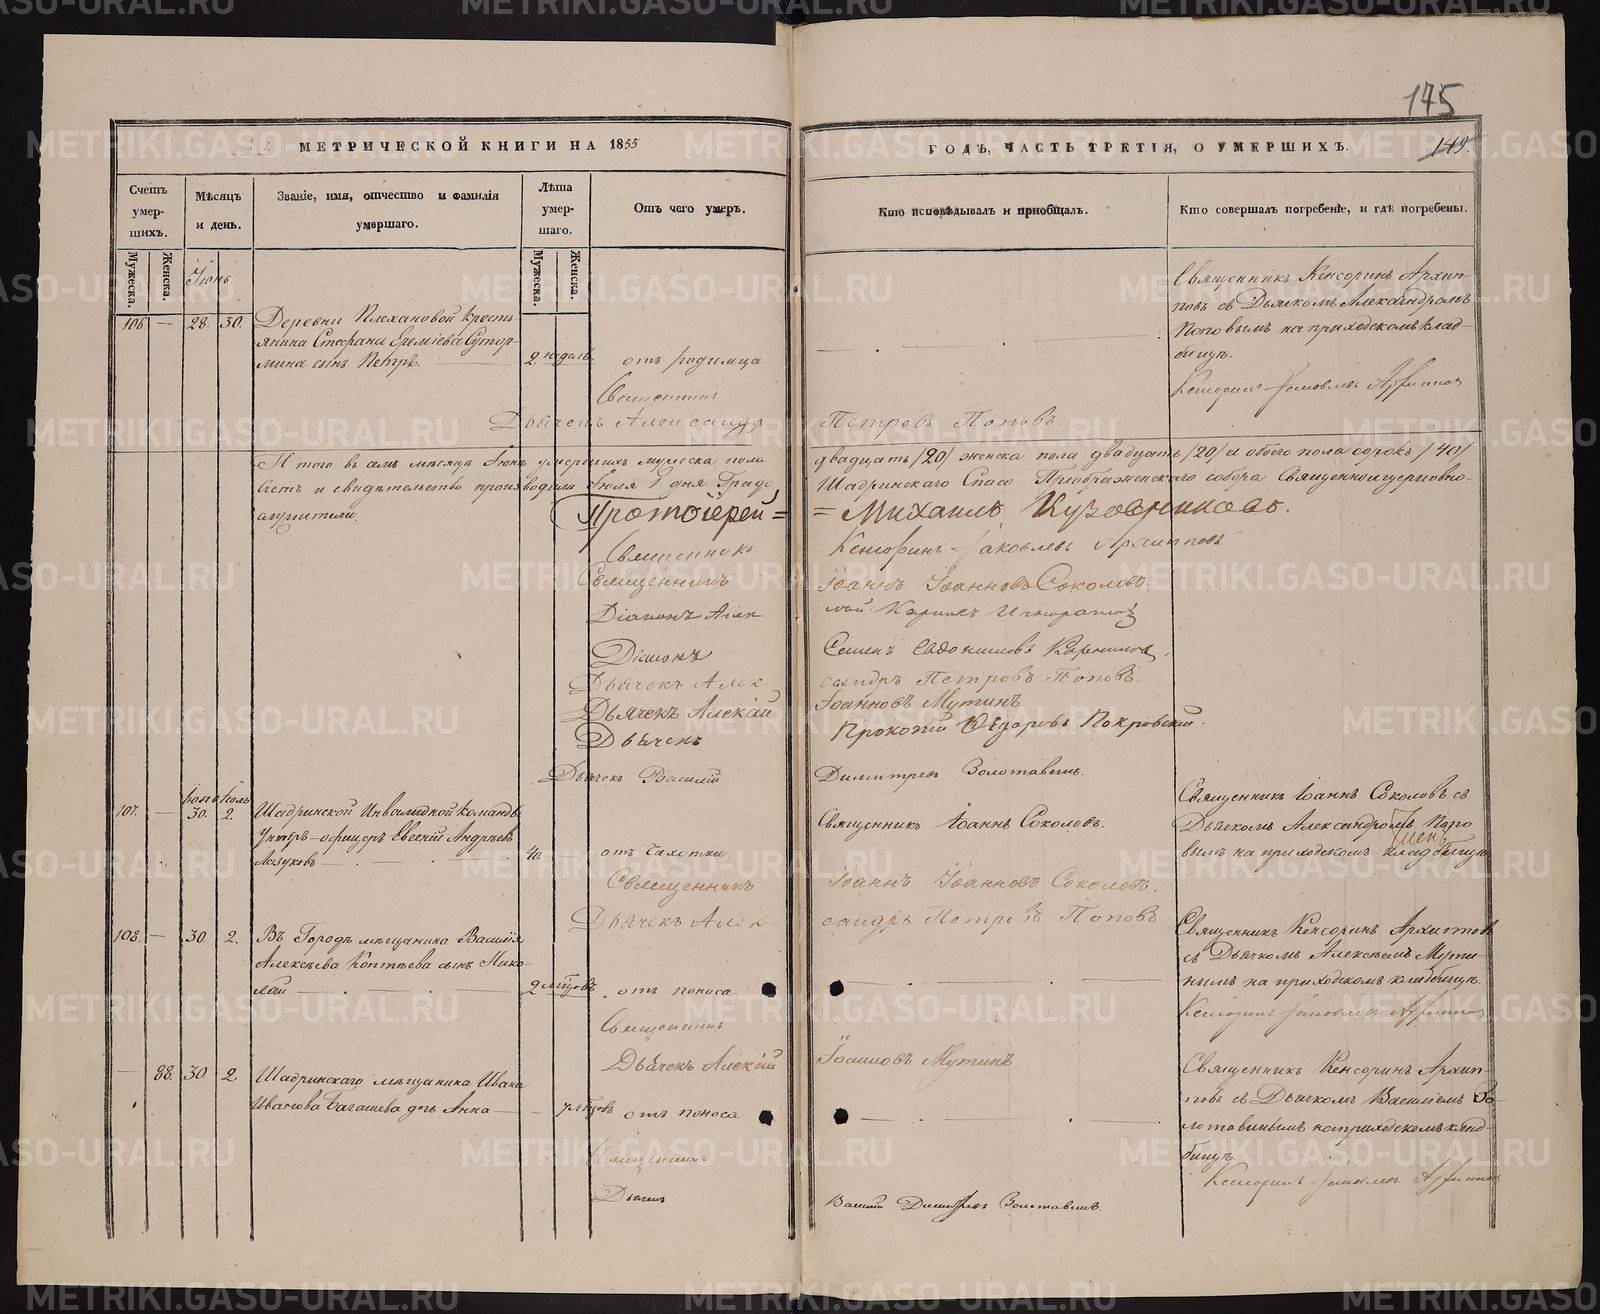 145
149.
МЕТРИЧЕСКОЙ КНИГИ НА 1855
ГОДЪ, ЧАСТЬ ТРЕТІЯ, О УМЕРШИХЪ.
Счетъ умер- шихъ.
Мѣсяцъ и день.
Званіе, имя, отчество и фамилія умершаго.
Лѣта умер- шаго.
Отъ чего умеръ.
Кто исповѣдывалъ и приобщалъ.
Кто совершалъ погребеніе, и гдѣ погребены.
Мужеска.
Женска.
Мужеска.
Женска.
Іюнь
106. — 28. 30.
Деревни Плехановой крестъ
янина Стефана Еремѣева Сутор
мина сынъ Петръ.
2 недѣль
отъ родимца
Священникъ Кенсоринъ Архип-
повъ съ Дьячкомъ Александромъ
Поповымъ на приходскомъ клад-
бищѣ.
Кенсоринъ Яковлевъ Архиповъ
Священникъ
Дьячекъ Александръ Петровъ Поповъ.
И того въ семъ мѣсяцѣ Іюнѣ умершихъ мужеска пола двадцать /20/ женска пола двадцать /20/ а обоего пола сорокъ /40/
Актъ и свидѣтельство производили Іюля 1 дня Градо Шадринскаго Спасо Преображенскаго собора Священноцерковно-
служители.
Протоіерей = = Михаилъ Кузовниковъ.
Священникъ Кенсоринъ Яковлевъ Архипповъ
Священникъ Іоаннъ Іоанновъ Соколовъ.
Діаконъ Алек
Діаконъ Семенъ Евдокимовъ
Дьячекъ Алек- сандръ Петровъ Поповъ.
Дьячекъ Алексій Іоанновъ Мутинъ
Дьячекъ Прокопій Покровскій.
Дьячекъ Василій Димитревъ Золотавинъ.
Іюнь Іюль
107. — 30. 2.
Шадринской Инвалидной команды
Унтеръ-офицеръ Евгеній Андреевъ
40.
отъ чахотки
Священникъ Іоаннъ Соколовъ.
Священникъ Іоаннъ Соколовъ съ
Дьячкомъ Александромъ Попо
вымъ на приходскомъ кладбищѣ
Священникъ Іоаннъ Іоанновъ Соколовъ.
Дьячекъ Алек сандръ Петровъ Поповъ
108. — 30. 2.
Въ Городѣ мѣщанина Василія
Алексѣева Коптѣева сынъ Нико-
лай
2 мѣсцовъ
отъ поноса
Священникъ Кенсоринъ Архиповъ
съ Дьячкомъ Алексѣемъ Мути-
нымъ на приходскомъ кладбищѣ.
Кенсоринъ Яковлевъ Архиповъ
Священникъ
Дьячекъ Алексій Іоанновъ Мутинъ
— 88. 30. 2.
Шадринскаго мѣщанина Ивана
Иванова Багашева дочь Анна
7 мѣсцовъ
отъ поноса
Священникъ Кенсоринъ Архип-
повъ съ Дьячкомъ Василіемъ Зо-
лотавинымъ на приходскомъ клад-
бищѣ.
Кенсоринъ Яковлевъ Архиповъ
Священникъ
Дьячекъ Василій Димитревъ Золотавинъ.
METRIKI.GASO-URAL.RU